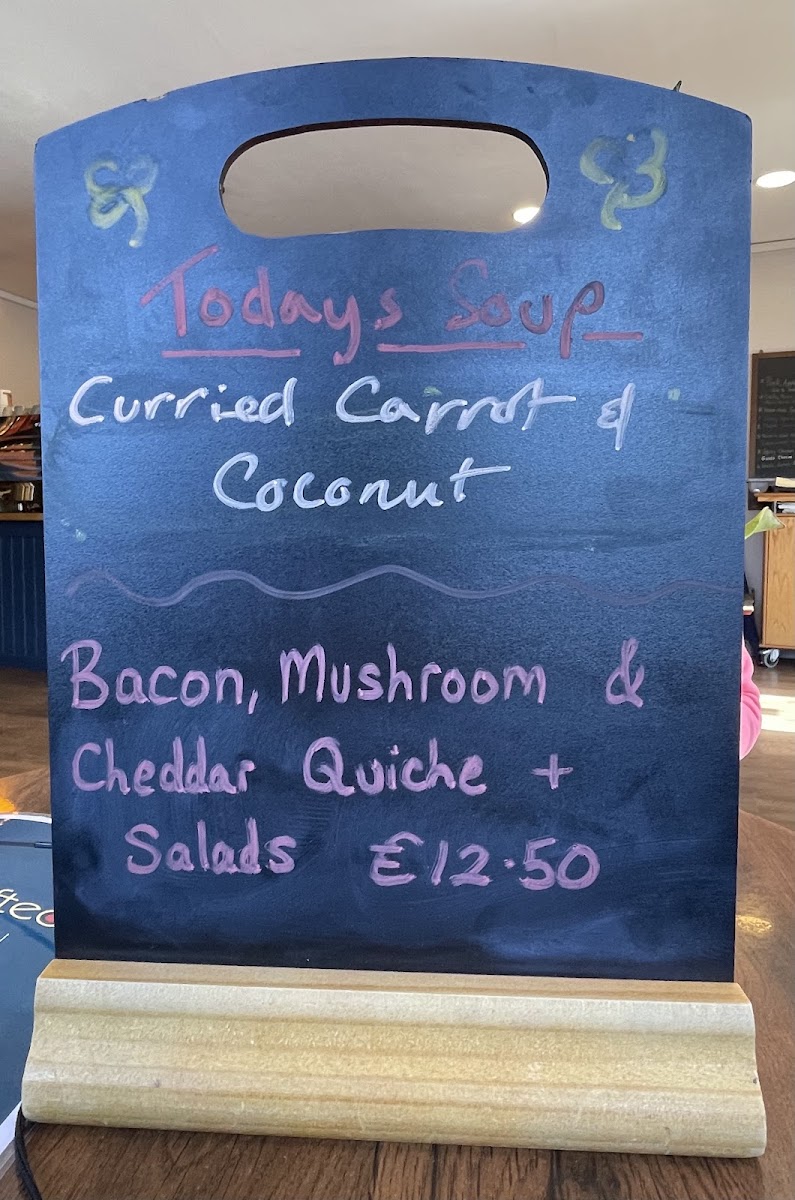 Todays Soup
Curried Carrot &
Coconut
Bacon, Mushroom &
Cheddar Quiche +
Salads £12.50